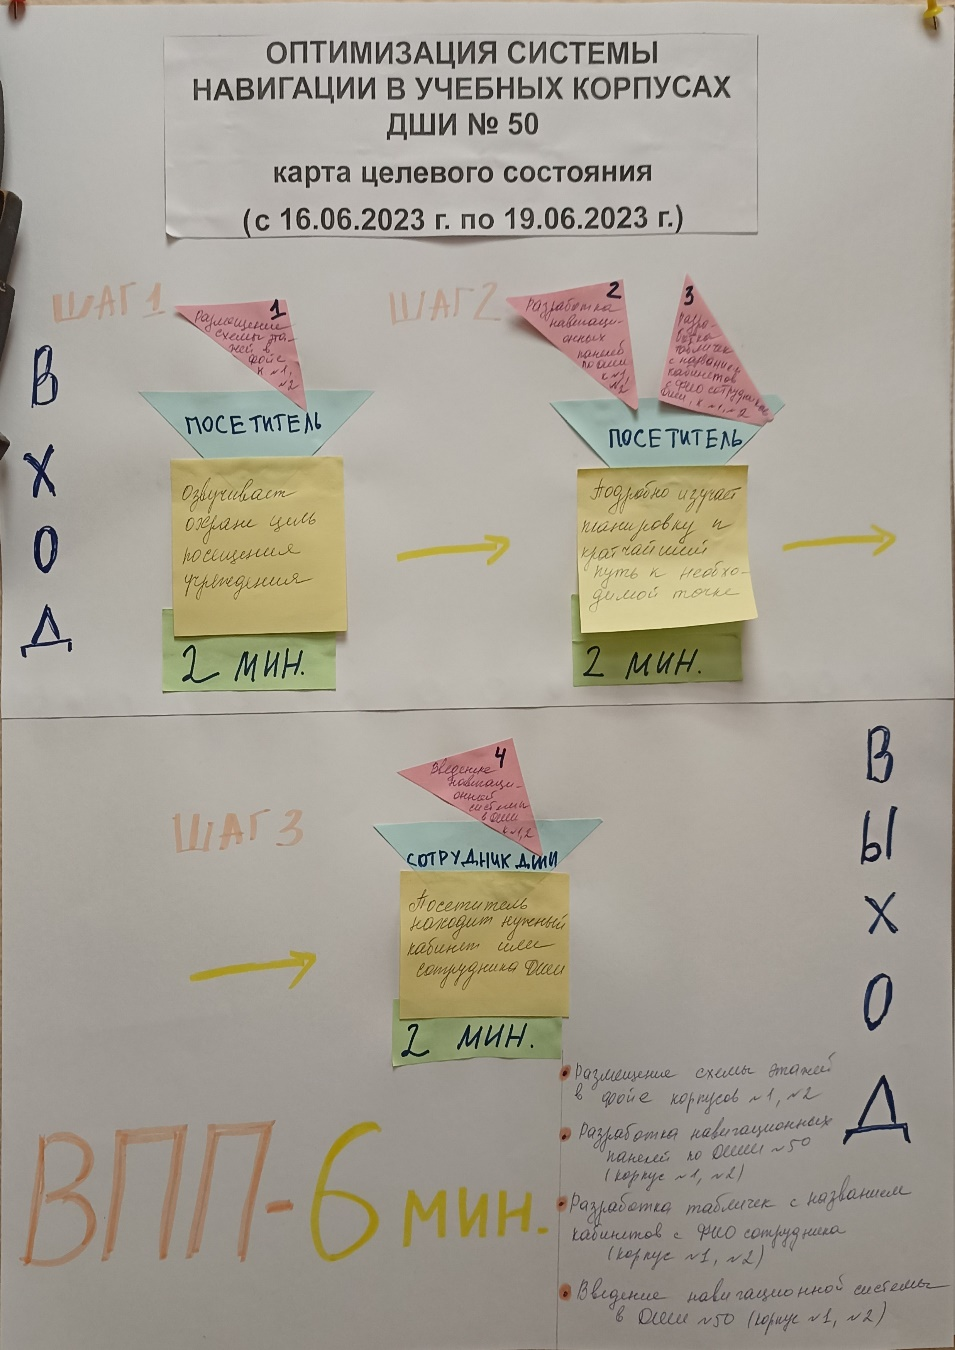 ОПТИМИЗАЦИЯ СИСТЕМЫ
НАВИГАЦИИ В УЧЕБНЫХ КОРПУСАХ
ДШИ № 50
карта целевого состояния
(с 16.06.2023 г. по 19.06.2023 г.)
ВХОД
ШАГ 1
1
Размещение
схемы эта-
жей в
фойе
к №1,
№2
ПОСЕТИТЕЛЬ
Озвучивает
охране цель
посещения
учреждения
2 МИН.
ШАГ 2
2
Разработка
навигаци-
онных
панелей
по ДШИ
к №1,
№2
3
Разра-
ботка
табличек
с названием
кабинетов
с ФИО сотрудников
ДШИ, к №1, №2
ПОСЕТИТЕЛЬ
Подробно изучает
планировку и
кратчайший
путь к необхо-
димой точке
2 МИН.
ШАГ 3
4
Введение
навигаци-
онной
системы
в ДШИ
к №1,2
СОТРУДНИК ДШИ
Посетитель
находит нужный
кабинет или
сотрудника ДШИ
2 МИН.
ВЫХОД
ВПП - 6 мин.
Размещение схемы этажей
в фойе корпусов №1, №2
Разработка навигационных
панелей по ДШИ №50
(корпус №1, №2)
Разработка табличек с названием
кабинетов с ФИО сотрудника
(корпус №1, №2)
Введение навигационной системы
в ДШИ №50 (корпус №1, №2)